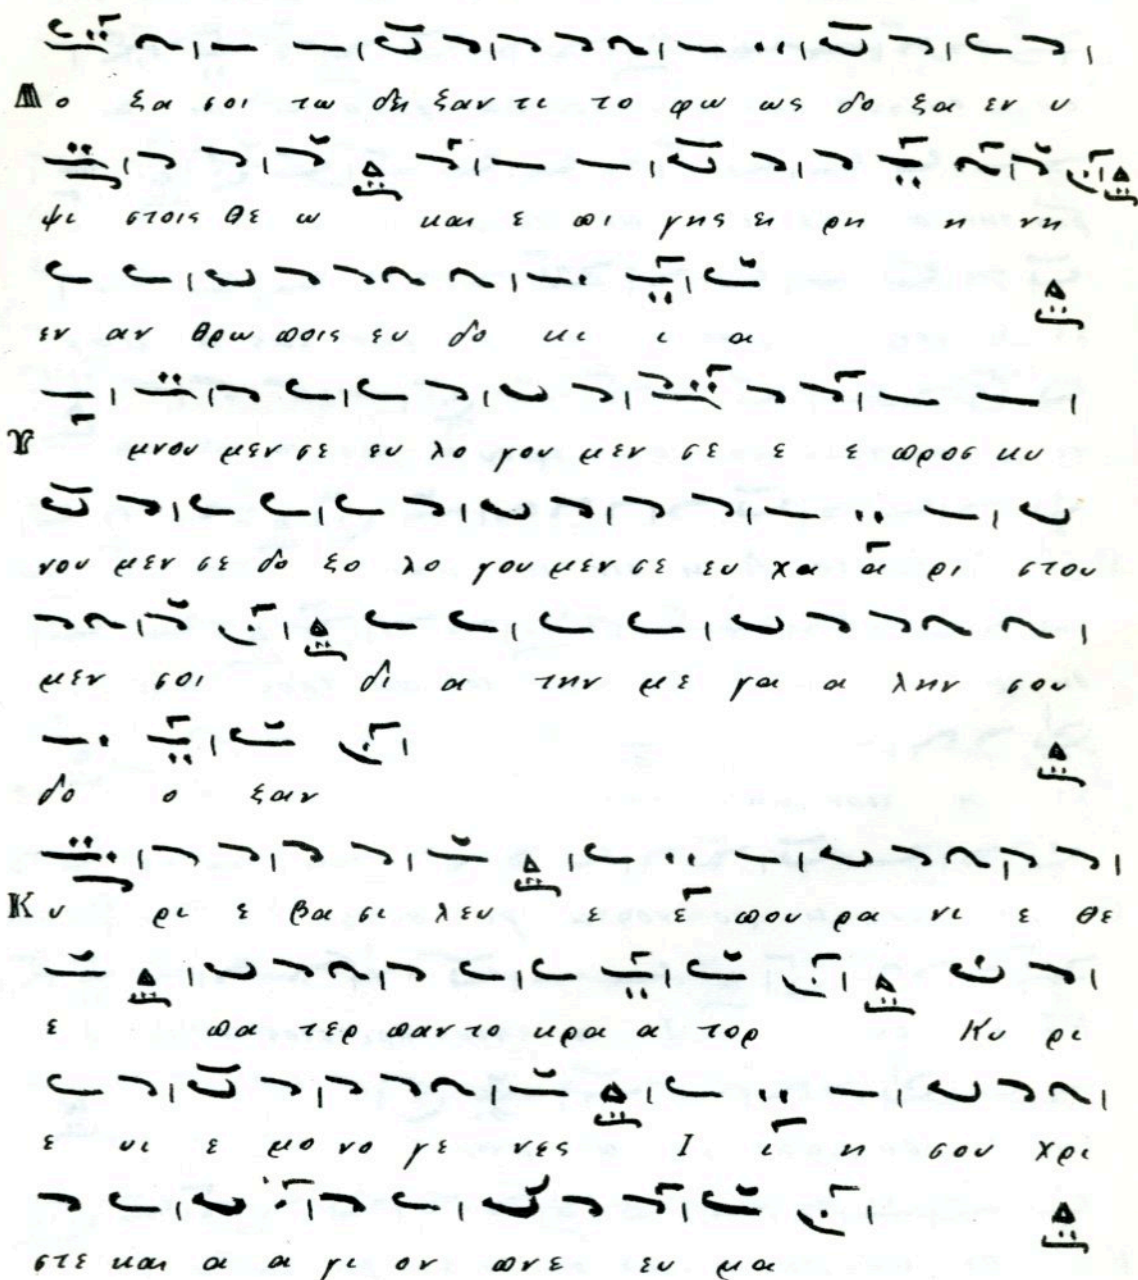 Δο ξα σοι τω δει ξαν τι το φω ως δο ξα εν υ
ψι στοις θε ω και ε πι γης ει ρη η νη
εν αν θρω ποις ευ δο κι ι α
Υ μνου μεν σε ευ λο γου μεν σε ε ε προσ κυ
νου μεν σε δο ξο λο γου μεν σε ευ χα α ρι στου
μεν σοι δι α την με γα α λην σου
δο ο ξαν
Κυ ρι ε βα σι λευ ε ε που ρα νι ε θε
ε πα τερ παν το κρα α τορ Κυ ρι
ε υι ε μο νο γε νες Ι ι η σου χρι
στε και α α γι ον πνε ευ μα